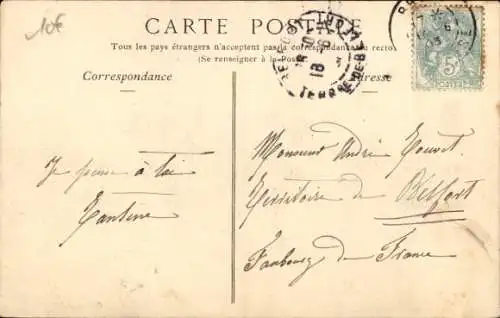 10€
CARTE POSTALE
Tous les pays étrangers n'acceptent pas la correspondance au recto
(Se renseigner à la Poste)
Correspondance
Adresse
Je pense à toi
Tantine
Monsieur André
Territoire de Belfort
Faubourg de France